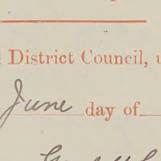 District Council,
June day of